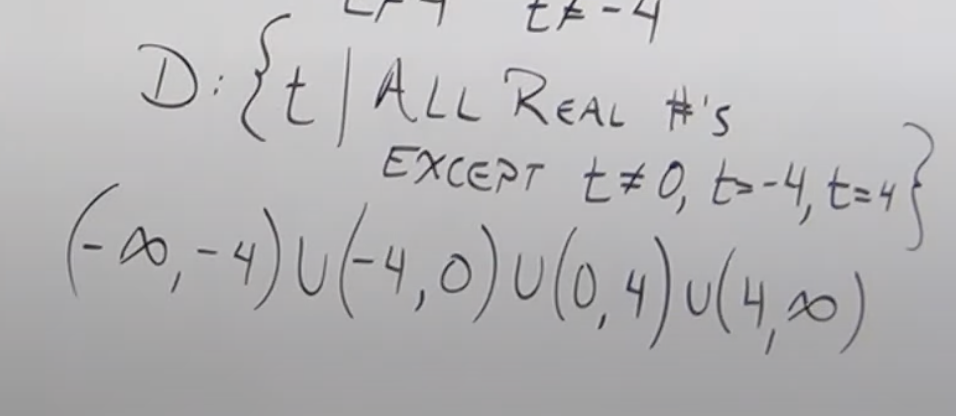 t ≠ 4 t ≠ -4
D: {t | ALL REAL #'s
EXCEPT t ≠ 0, t=-4, t=4}
(-∞, -4) ∪ (-4, 0) ∪ (0, 4) ∪ (4, ∞)